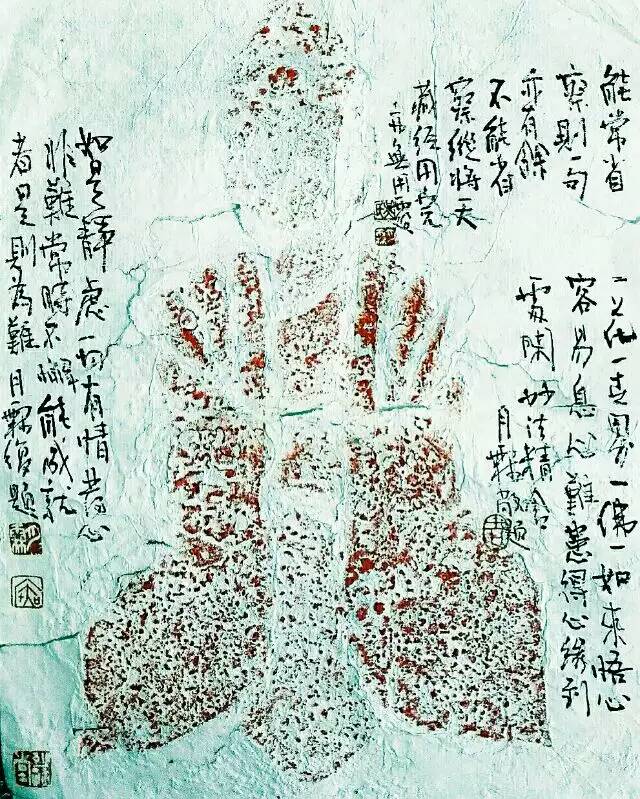 能常省
察則一句
亦有餘
不能省
察縱將大
藏經用
亦無用處
一花一世界一佛一如來悟心
容易息心難息得心緣到
處閑 妙法精舍
月題
如是靜慮一切有情發心
非難常時不懈能成就
者是則為難月復題